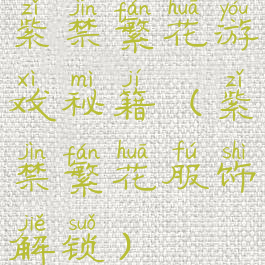 zǐ jìn fán huā yóu
紫禁繁花游
xì mì jí zǐ
戏秘籍(紫
jìn fán huā fú shì
禁繁花服饰
jiě suǒ
解锁)